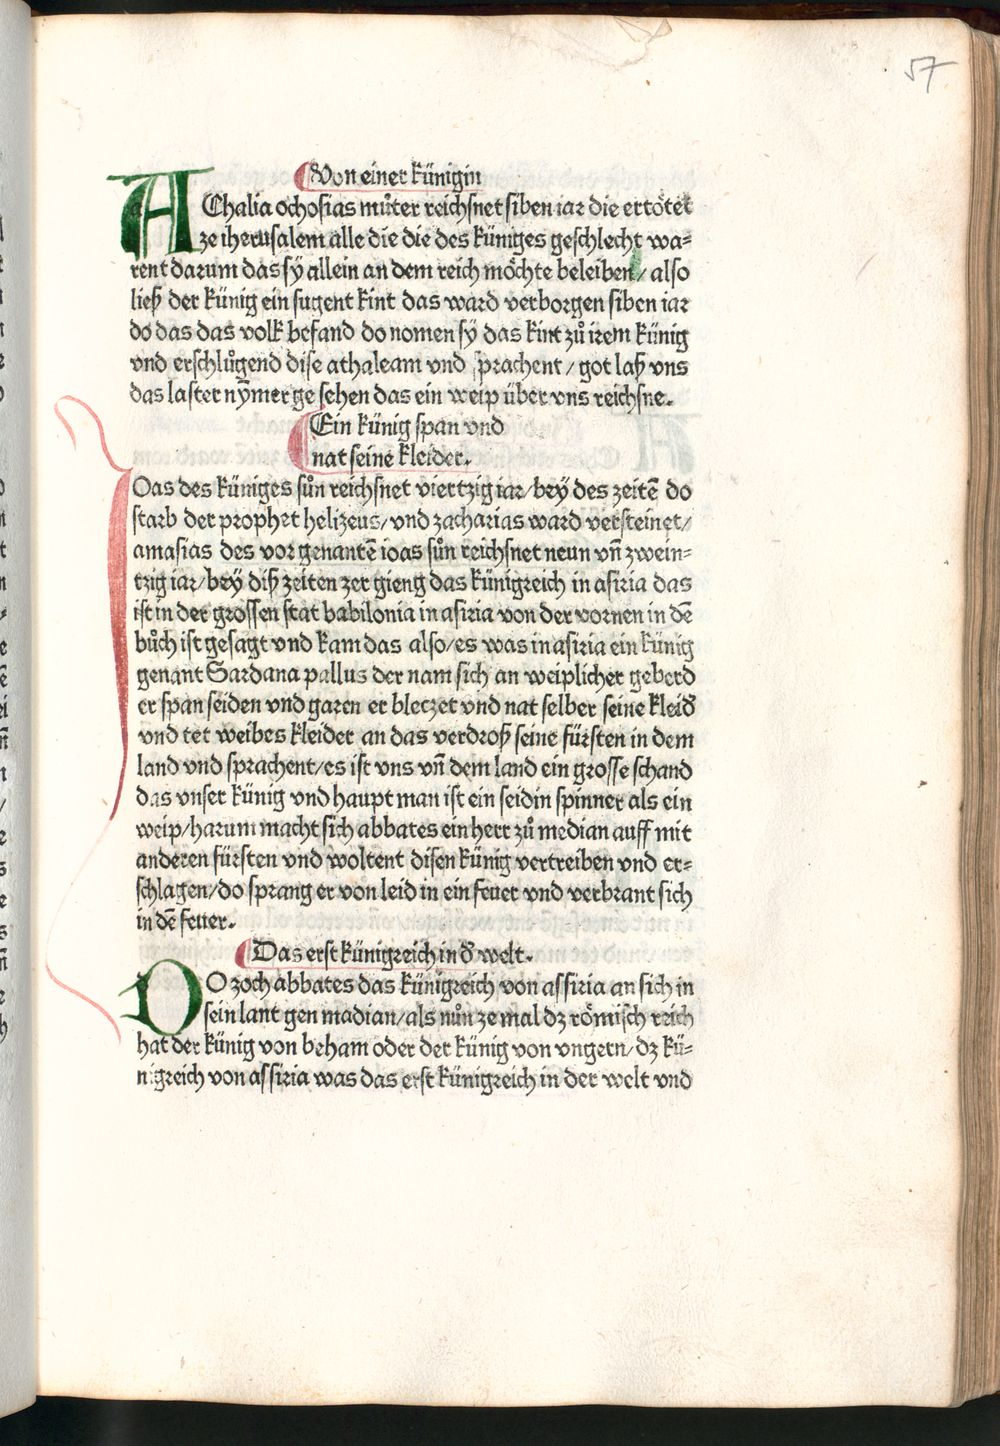 57
Von einer künigin
AChalia ochosias můter reichsnet siben iar die ertötet
ze iherusalem alle die die des küniges geschlecht wa⸗
rent darum das sÿ allein an dem reich möchte beleiben/ also
ließ der künig ein sugent kint das ward verborgen siben iar
do das das volk befand do nomen sÿ das kint zů irem künig
vnd erschlůgend dise athaleam vnd sprachent/ got laß vns
das laster nȳmer ge sehen das ein weip über vns reichsne.
Ein künig span vnd
nat seine kleider.
IOas des küniges sůn reichsnet viertzig iar/ beÿ des zeitē do
starb der prophet helizeus/ vnd zacharias ward versteinet/
amasias des vor genantē ioas sůn reichsnet neun vn̄ zwein⸗
tzig iar/ beÿ diß zeiten zer gieng das künigreich in asiria das
ist in der grossen stat babilonia in asiria von der vornen in dē
bůch ist gesagt vnd kam das also/ es was in asiria ein künig
genant Sardana pallus der nam sich an weiplicher geberd
er span seiden vnd garen er bleczet vnd nat selber seine kleid
vnd tet weibes kleider an das verdroß seine fürsten in dem
land vnd sprachent/ es ist vns vn̄ dem land ein grosse schand
das vnser künig vnd haupt man ist ein seidin spinner als ein
weip/ harum macht sich abbates ein herr zů median auff mit
anderen fürsten vnd woltent disen künig vertreiben vnd er⸗
schlagen/ do sprang er von leid in ein feuer vnd verbrant sich
in dē feuer.
Das erst künigreich in d̕ welt.
DO zoch abbates das künigreich von assiria an sich in
sein lant gen madian/ als nůn ze mal dz römisch reich
hat der künig von beham oder der künig von vngern/ dz kü⸗
nigreich von assiria was das erst künigreich in der welt vnd